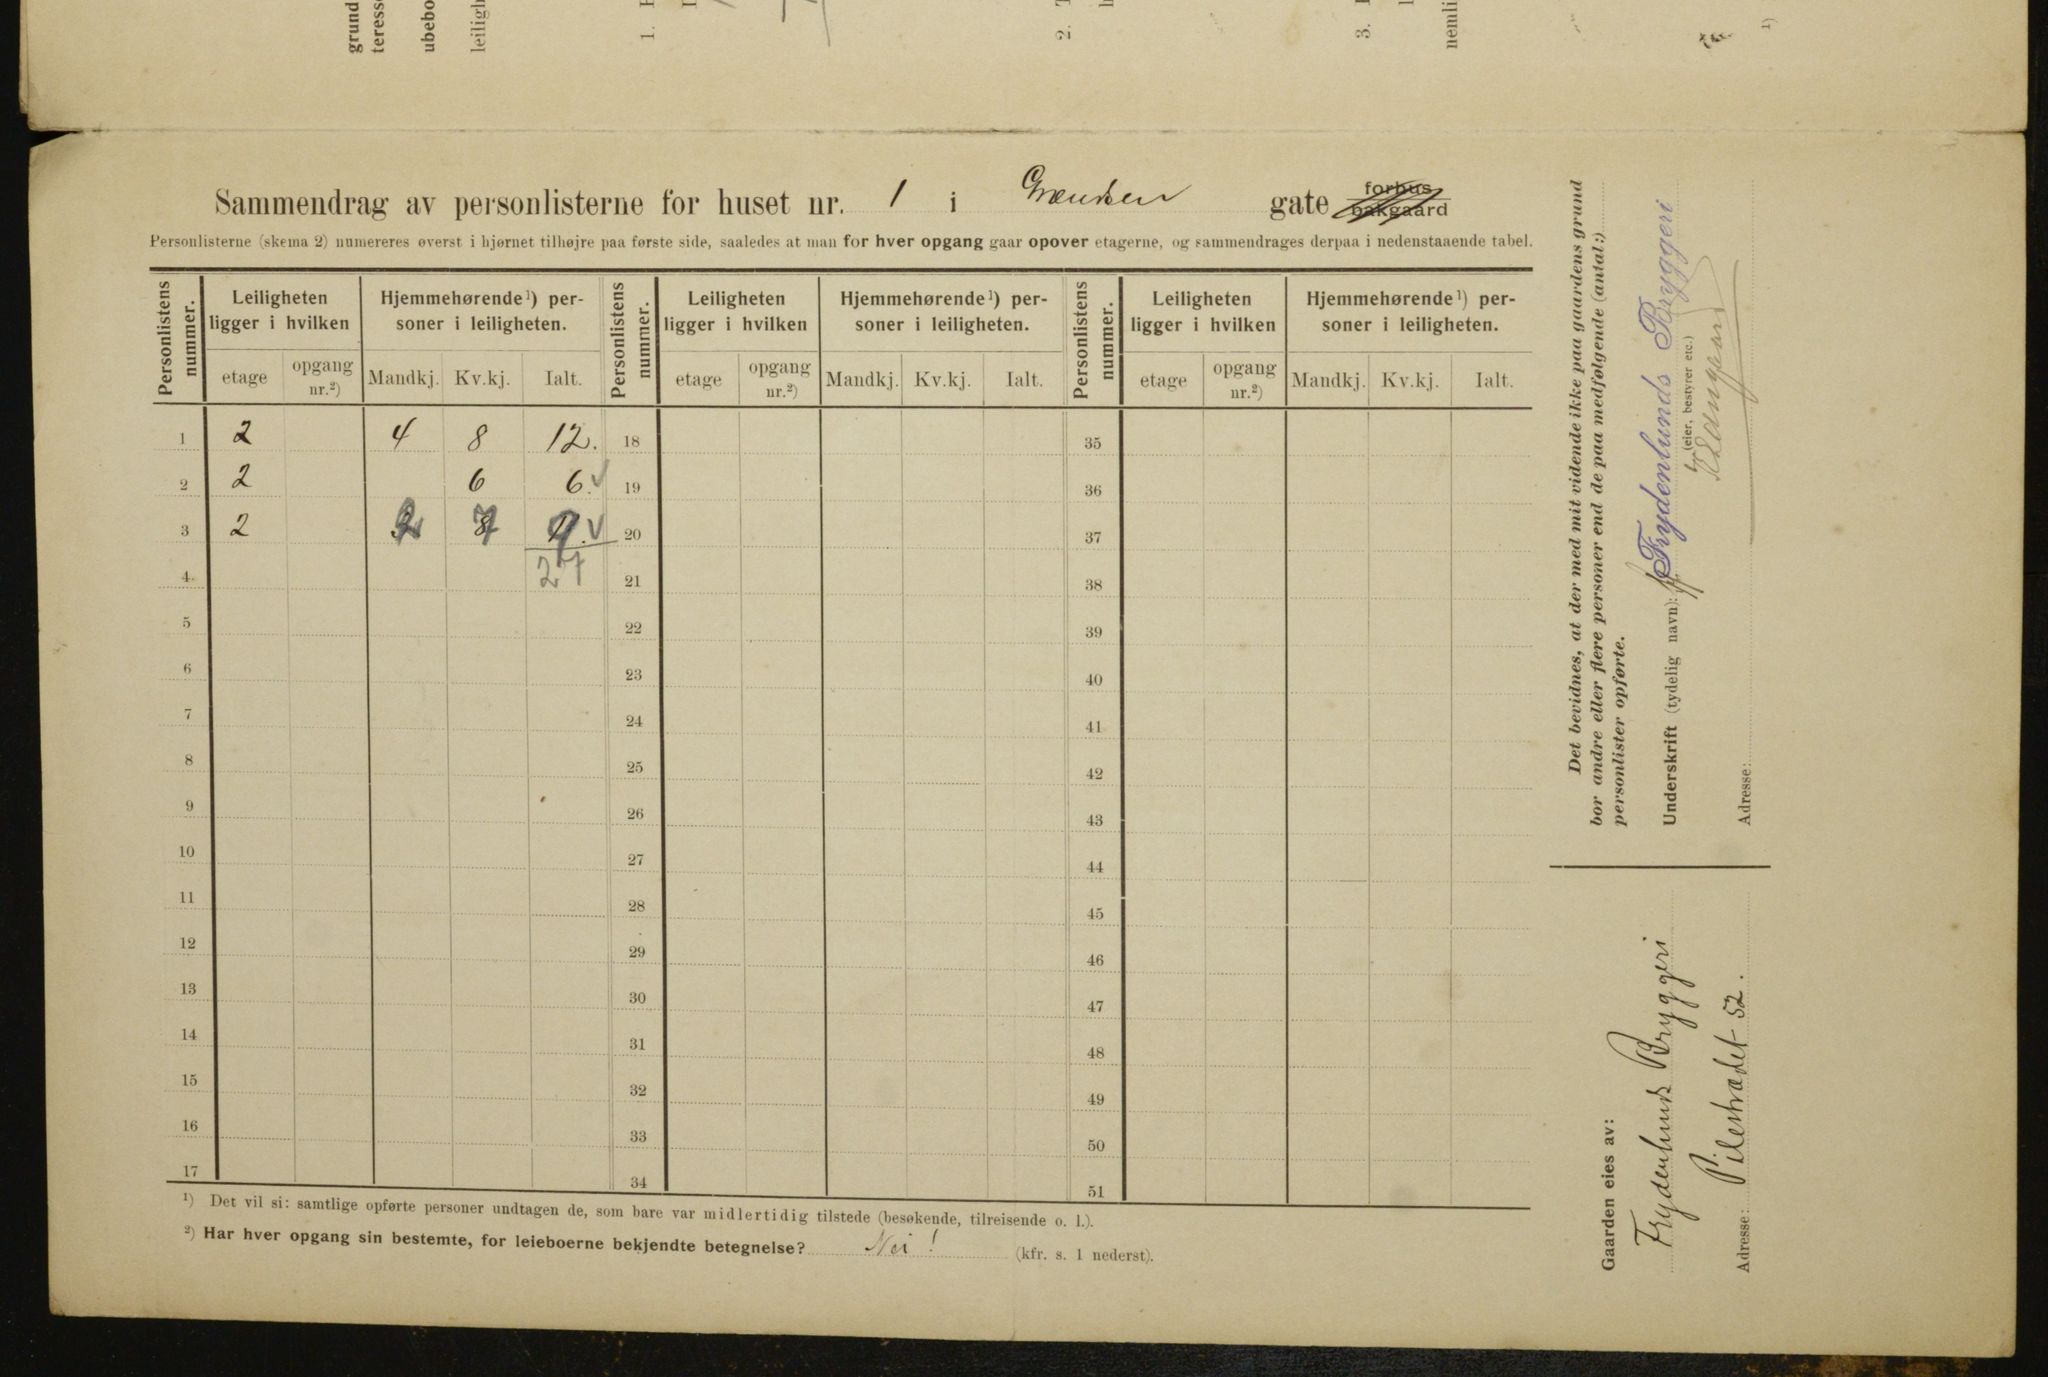 grund
teress
ubebo
leiligh
1.
2.
3.
nemli
1)
Sammendrag av personlisterne for huset nr. 1 i Grændsen gate forhus bakgaard
Personlisterne (skema 2) numereres øverst i hjørnet tilhøjre paa første side, saaledes at man for hver opgang gaar opover etagerne, og sammendrages derpaa i nedenstaaende tabel.
Personlistens nummer. Leiligheten ligger i hvilken Hjemmehørende 1) personer i leiligheten. Personlistens nummer. Leiligheten ligger i hvilken Hjemmehørende 1) personer i leiligheten. Personlistens nummer. Leiligheten ligger i hvilken Hjemmehørende 1) personer i leiligheten.
etage opgang nr.2) Mandkj. Kv.kj. Ialt. etage opgang nr.2) Mandkj. Kv.kj. Ialt. etage opgang nr.2) Mandkj. Kv.kj. Ialt.
1 2 4 8 12. 18 35
2 2 6 6. 19 36
3 2 2 7 9 20 37
4 27 21 38
5 22 39
6 23 40
7 24 41
8 25 42
9 26 43
10 27 44
11 28 45
12 29 46
13 30 47
14 31 48
15 32 49
16 33 50
17 34 51
1) Det vil si: samtlige opførte personer undtagen de, som bare var midlertidig tilstede (besøkende, tilreisende o. l.).
2) Har hver opgang sin bestemte, for leieboerne bekjendte betegnelse? Nei! (kfr. s. 1 nederst).
Det bevidnes, at der med mit vidende ikke paa gaardens grund
bor andre eller flere personer end de paa medfølgende (antal:)
personlister opførte.
Underskrift (tydelig navn): Frydenlunds Bryggeri
(eier, bestyrer etc.)
Adresse:
Gaarden eies av:
Frydenlunds Bryggeri
Adresse: Pilestrædet 52.